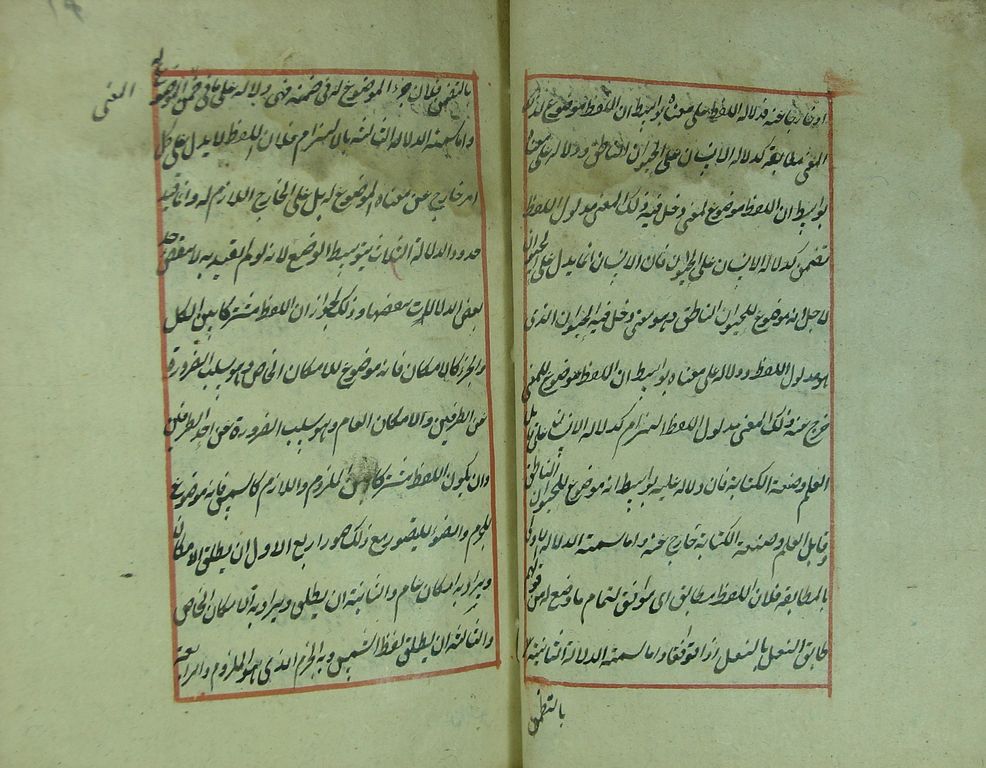 او خارجا عنه فدلالة اللفظ على معناه بواسطة ان اللفظ موضوع لذلك
المعنى مطابقة كدلالة الانسان على الحيوان الناطق ودلالة على معناه
بواسطة ان اللفظ موضوع لمعنى دخل فيه ذلك المعنى مدلول اللفظ
تضمن كدلالة الانسان على الحيوان فان الانسان انما يدل على الحيوان
لاجل انه موضوع للحيوان الناطق وهو معنى دخل فيه الحيوان الذى
هو مدلول اللفظ ودلالة على معناه بواسطة ان اللفظ موضوع للمعنى
خرج عنه ذلك المعنى مدلول اللفظ التزام كدلالة الانسان على قابل
العلم وصنعة الكتابة فان دلالة عليه بواسطة انه موضوع للحيوان الناطق
وقابل العلم وصنعة الكتابة خارج عنه واما تسمية الدلالة الاولى
بالمطابقة فلان اللفظ مطابق اى موافق لتمام ما وضع له من قولهم
طابق النعل بالنعل اذا توافقا واما تسمية الدلالة الثانية
بالتضمن
بالتضمن فلان جزء الموضوع له فى ضمنه فهى دلالة على ما فى ضمن الموضوع له
المعنى
واما تسمية الدلالة الثالثة بالالتزام فلان اللفظ لا يدل على كل
امر خارج عن معناه الموضوع له بل على الخارج اللازم له وانما قيد
حدود الدلالة الثلاث بتوسط الوضع لانه لو لم يقيد به لانتقض حد
بعض الدلالات ببعضها وذلك لجواز ان اللفظ مشتركا بين الكل
والجزء كالامكان فانه موضوع للامكان الخاص وهو سلب الضرورة
عن الطرفين والامكان العام وهو سلب الضرورة عن احد الطرفين
وان يكون اللفظ مشتركا بين الملزوم واللازم كالشمس فانه موضوع
للجرم والضوء ليتصور مع ذلك صور اربع الاول ان يطلق الامكان
ويراد به امكان عام والثانية ان يطلق ويراد به الامكان الخاص
والثالثة ان يطلق لفظ الشمس وبه الجرم الذى هو الملزوم والرابعة